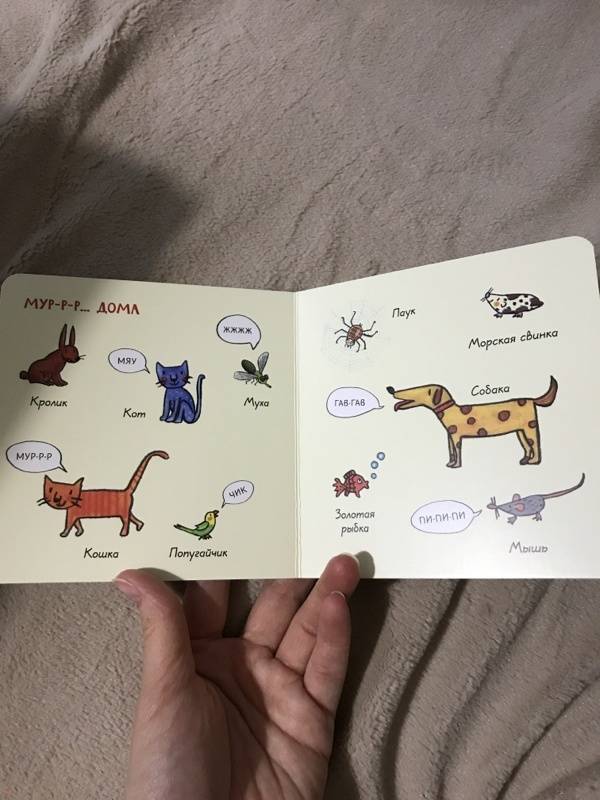 МУР-Р-Р... ДОМА
ЖЖЖЖ
МЯУ
Кролик
Кот
Муха
МУР-Р-Р
ЧИК
Кошка
Попугайчик
Паук
Морская свинка
ГАВ-ГАВ
Собака
Золотая
рыбка
ПИ-ПИ-ПИ
Мышь